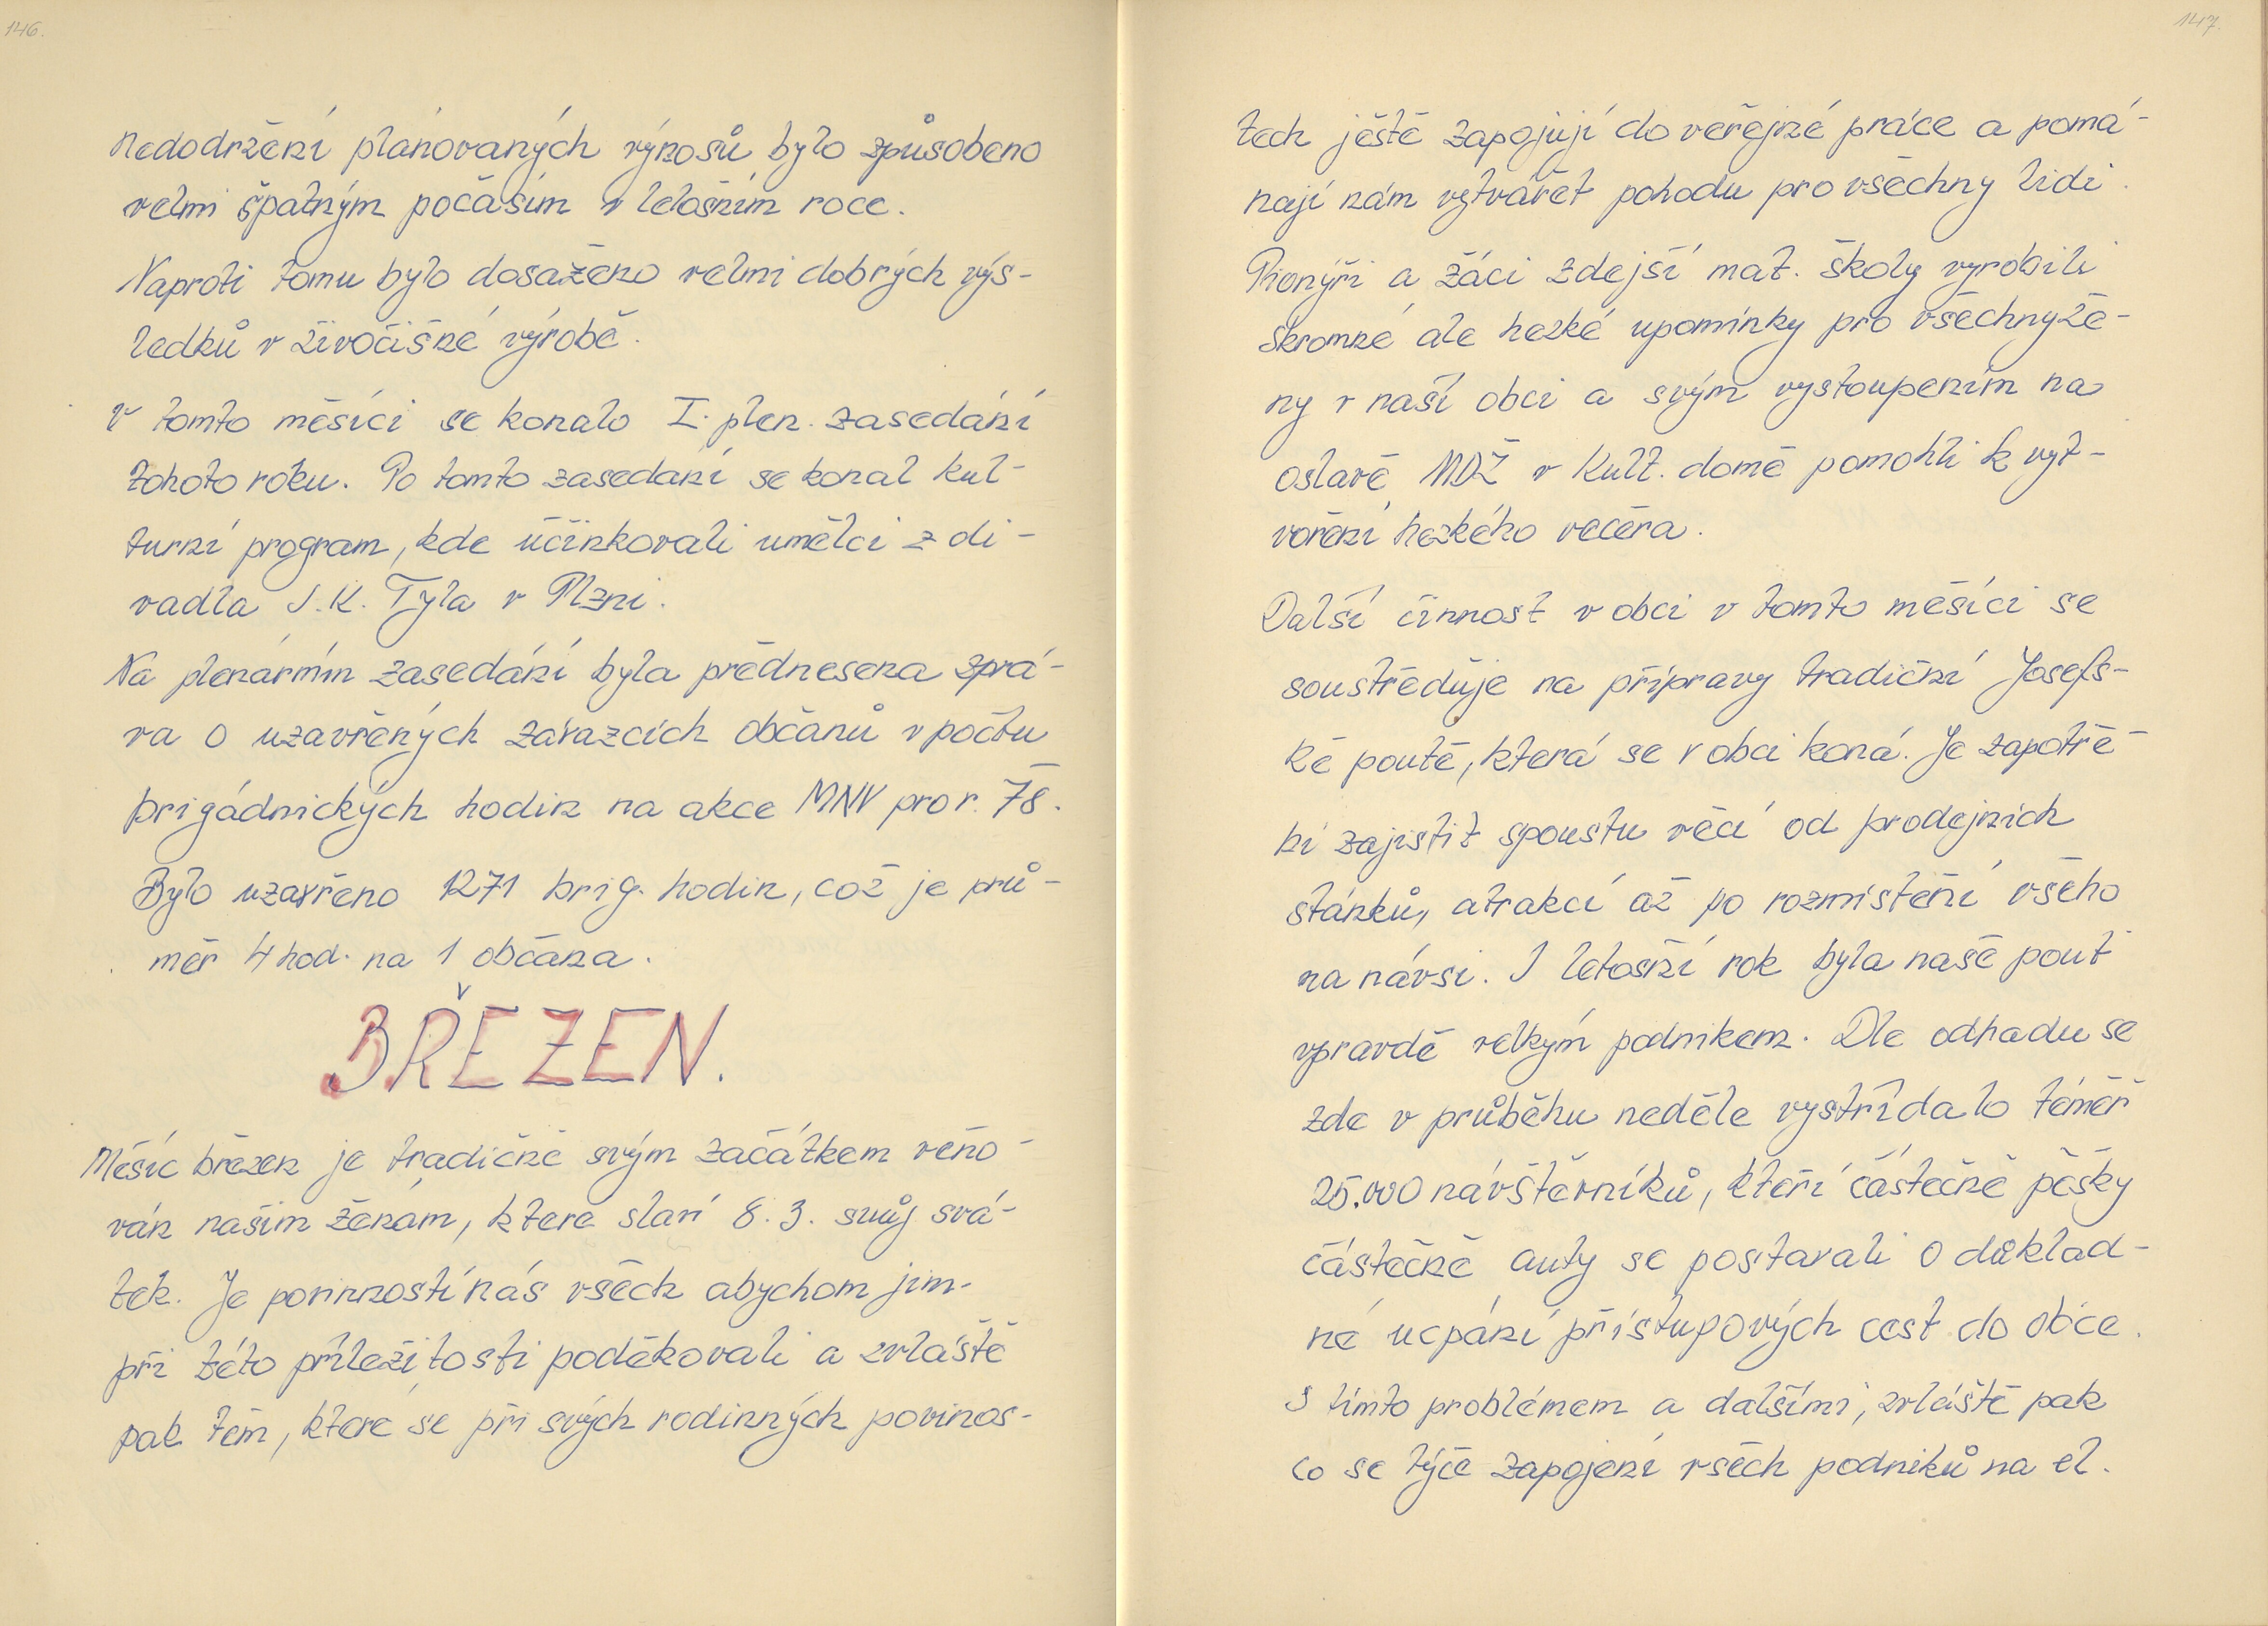 146.
nedodržení plánovaných výnosů bylo způsobeno
velmi špatným počasím v letošním roce.
Naproti tomu bylo dosaženo velmi dobrých výs-
ledků v živočišné výrobě.
v tomto měsíci se konalo I. plen. zasedání
tohoto roku. Po tomto zasedání se konal kul-
turní program, kde účinkovali umělci z di-
vadla J.K. Tyla v Plzni.
Na plenárním zasedání byla přednesena zprá-
va o uzavřených závazcích občanů v počtu
brigádnických hodin na akce MNV pro r. 78.
Bylo uzavřeno 1271 brig. hodin, což je prů-
měr 4 hod. na 1 občana.
BŘEZEN.
Měsíc březen je tradičně svým začátkem věno-
ván našim ženám, které slaví 8.3. svůj svá-
tek. Je povinností nás všech abychom jim-
při této příležitosti poděkovali a zvláště
pak těm, které se při svých rodinných povinos-
147.
tech ještě zapojují do veřejné práce a pomá-
hají nám vytvářet pohodu pro všechny lidi.
Pionýři a žáci zdejší mat. školy vyrobili
skromné ale hezké upomínky pro všechny že-
ny v naší obci a svým vystoupením na
oslavě MDŽ v Kult. domě pomohli k vyt-
voření hezkého večera.
Další činnost v obci v tomto měsíci se
soustřeďuje na přípravy tradiční Josefs-
ké poutě, která se v obci koná. Je zapotře-
bí zajistit spoustu věcí od prodejních
stánků, atrakcí až po rozmístění všeho
na návsi. I letošní rok byla naše pouť
vpravdě velkým podnikem. Dle odhadu se
zde v průběhu neděle vystřídalo téměř
25.000 návštěvníků, kteří částečně pěšky
částečně auty se postarali o důklad-
né ucpání přístupových cest do obce.
S tímto problémem a dalšími, zvláště pak
co se týče zapojení všech podniků na el.